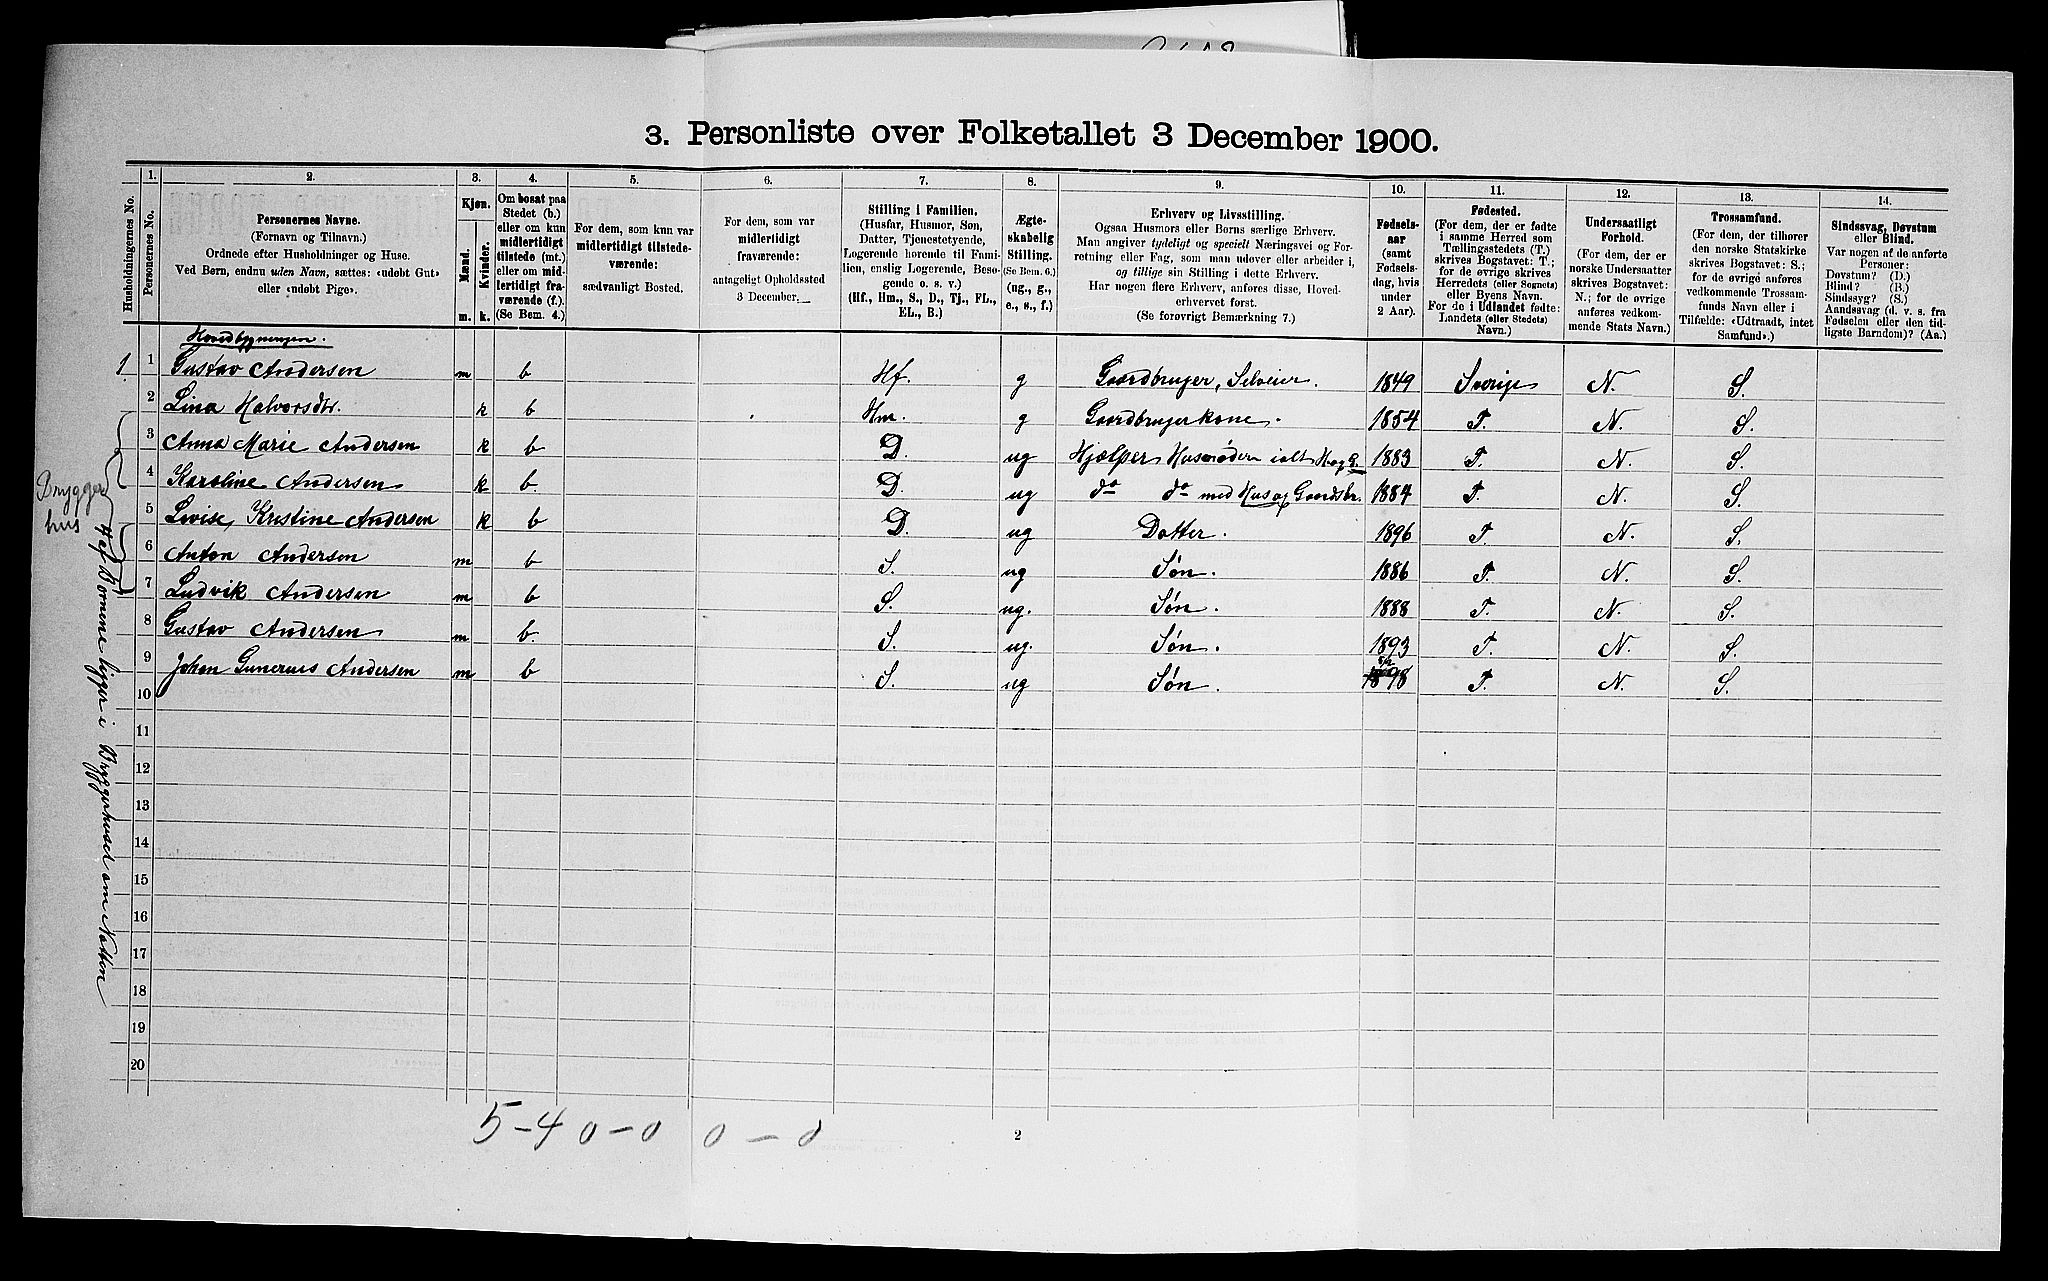 3. Personliste over Folketallet 3 December 1900.
Husholdningernes No.
1.
Personernes No.
2.
Personernes Navne.
(Fornavn og Tilnavn.)
Ordnede efter Husholdninger og Huse.
Ved Børn, endnu uden Navn, sættes: «udøbt Gut»
eller «udøbt Pige».
3.
Kjøn.
Mænd.
Kvinder.
m.
k.
4.
Om bosat paa
Stedet (b.)
eller om kun
midlertidigt
tilstede (mt.)
eller om mid-
lertidigt fra-
værende (f.).
(Se Bem. 4.)
5.
For dem, som kun var
midlertidigt tilstede-
værende:
sædvanligt Bosted.
6.
For dem, som var
midlertidigt
fraværende:
antageligt Opholdssted
3 December.
7.
Stilling i Familien.
(Husfar, Husmor, Søn,
Datter, Tjenestetyende,
Logerende hørende til Fami-
lien, enslig Logerende, Besø-
gende o. s. v.)
(Hf., Hm., S., D., Tj., FL.,
EL., B.)
8.
Ægte-
skabelig
Stilling.
(Se Bem. 6.)
(ug., g.,
e., s., f.)
9.
Erhverv og Livsstilling.
Ogsaa Husmors eller Børns særlige Erhverv.
Man angiver tydeligt og specielt Næringsvei og For-
retning eller Fag, som man udøver eller arbeider i,
og tillige sin Stilling i dette Erhverv.
Har nogen flere Erhverv, anføres disse, Hoved-
erhvervet først.
(Se forøvrigt Bemærkning 7.)
10.
Fødsels-
aar
(samt
Fødsels-
dag, hvis
under
2 Aar).
11.
Fødested.
(For dem, der er fødte
i samme Herred som
Tællingsstedets (T.)
skrives Bogstavet: T.;
for de øvrige skrives
Herredets (eller Sognets)
eller Byens Navn.
For de i Udlandet fødte:
Landets (eller Stedets)
Navn.)
12.
Undersaatligt
Forhold.
(For dem, der er
norske Undersaatter
skrives Bogstavet:
N.; for de øvrige
anføres vedkom-
mende Stats Navn.)
13.
Trossamfund.
(For dem, der tilhører
den norske Statskirke
skrives Bogstavet: S.;
for de øvrige anføres
vedkommende Trossam-
funds Navn eller i
Tilfælde: «Udtraadt, intet
Samfund».)
14.
Sindssvag, Døvstum
eller Blind.
Var nogen af de anførte
Personer:
Døvstum? (D.)
Blind? (B.)
Sindssyg? (S.)
Aandssvag (d. v. s. fra
Fødselen eller den tid-
ligste Barndom)? (Aa.)
Hovedbygningen.
1 1 Gustav Andersen m b Hf. g Gaardbruger, Selveier. 1849 Sverige N. S.
2 Lina Halvorsdtr. k b Hm. g Gaardbrugerkone. 1854 T. N. S.
3 Anna Marie Andersen k b D. ug Hjælper Husmoderen ialt H og G. 1883 T. N. S.
4 Karoline Andersen k b. D. ug do do med Hus og Gaardsbr. 1884 T. N. S.
5 Lovise Kristine Andersen k b D. ug Datter. 1896 T. N. S.
6 Anton Andersen m b S. ug Søn. 1886 T. N. S.
7 Ludvik Andersen m b S. ug. Søn. 1888 T. N. S.
8 Gustav Andersen m b. S. ug. Søn. 1893 T. N. S.
9 Johan Gunerius Andersen m b S. ug Søn. 1898 T. N. S.
10
11
12
13
14
15
16
17
18
19
20
Brygger
hus
4 af Børnene ligger i Bryggerhuset om Natten
5-4 0-0 0-0
2